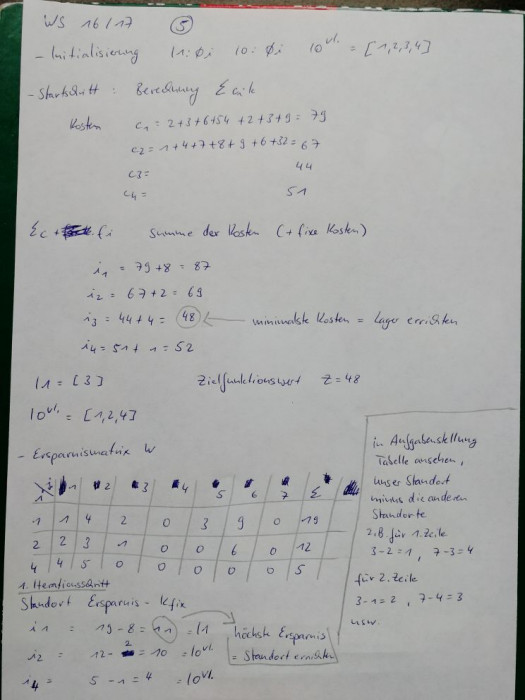 WS 16/17 5
- Initialisierung I1: Øi I0: Øi I0vl. = [1,2,3,4]
- Startschritt: Berechnung Σ cik
Kosten c1 = 2+3+6+54 +2+3+9 = 79
c2 = 1+4+7+8+9+6+32 = 67
c3 = 44
c4 = 51
Σc + fi Summe der Kosten (+ fixe Kosten)
i1 = 79+8 = 87
i2 = 67+2 = 69
i3 = 44+4 = 48 ← minimalste Kosten = Lager errichten
i4 = 51+1 = 52
I1 = [3] Zielfunktionswert Z = 48
I0vl. = [1,2,4]
- Ersparnismatrix W
i 1 2 3 4 5 6 7 Σ
1 1 4 2 0 3 9 0 19
2 2 3 1 0 0 6 0 12
4 4 5 0 0 0 0 0 5
1. Iterationsschritt
Standort Ersparnis - kfix
i1 = 19-8 = 11 = I1
i2 = 12-2 = 10 = I0vl.
i4 = 5-1 = 4 = I0vl.
höchste Ersparnis
= Standort errichten
in Aufgabenstellung
Tabelle ansehen,
unser Standort
minus die anderen
Standorte
z.B für 1. Zeile
3-2=1, 7-3=4
für 2. Zeile
3-1=2, 7-4=3
usw.